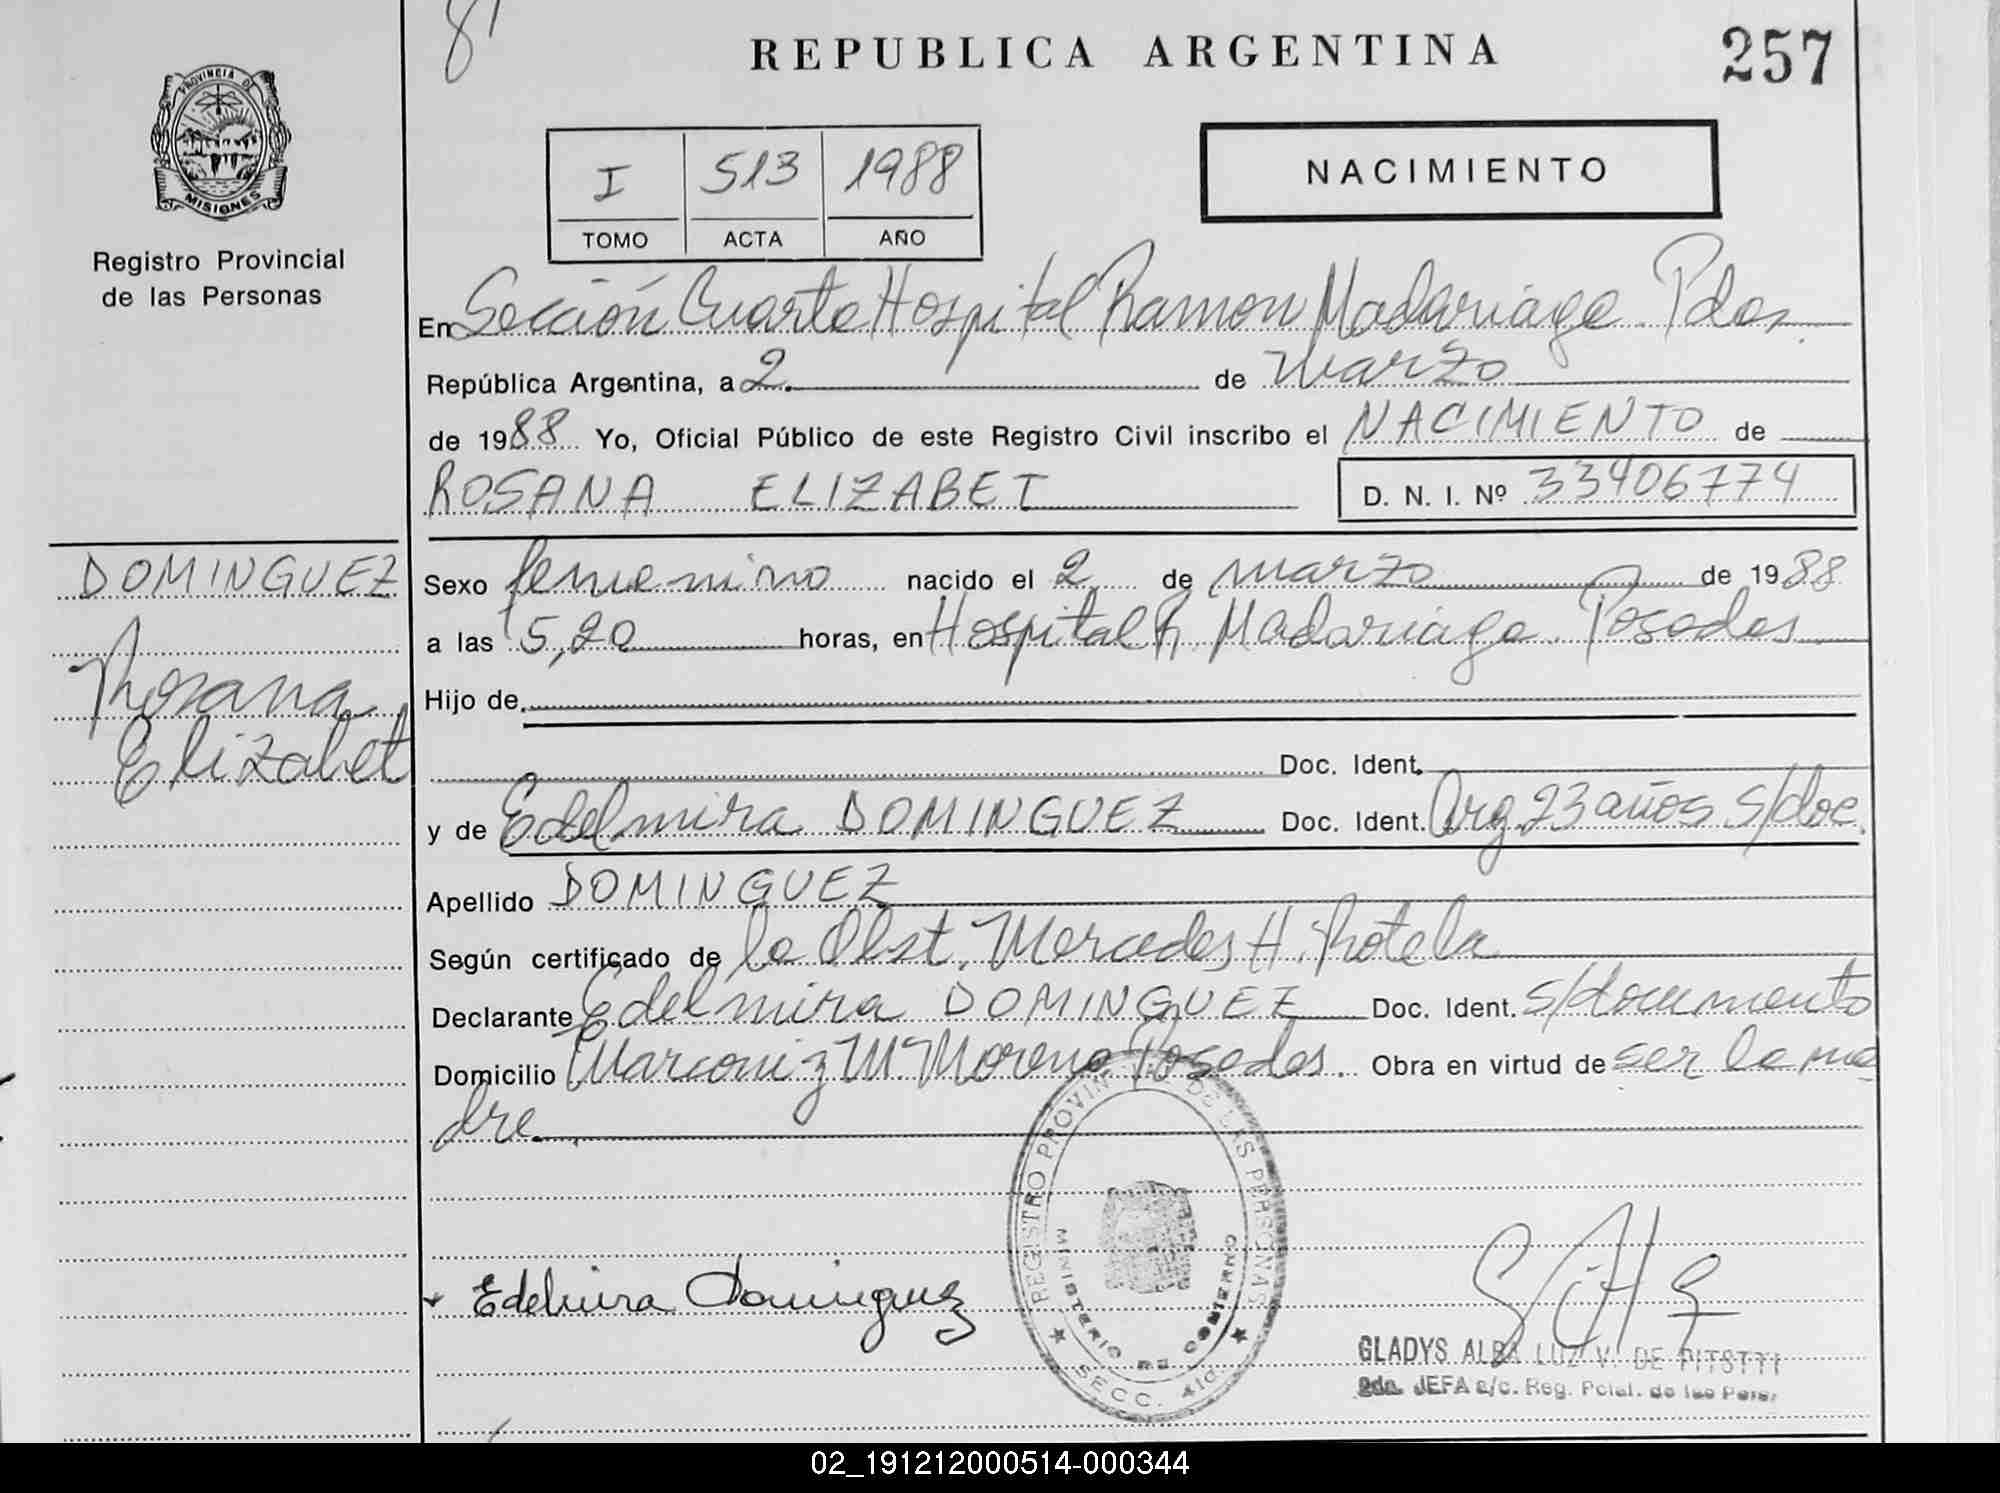 8
REPUBLICA ARGENTINA
257
PROVINCIA DE
MISIONES
Registro Provincial
de las Personas
I 513 1988
TOMO ACTA AÑO
NACIMIENTO
En Sección Cuarta Hospital Ramon Madariaga. Pdas.
República Argentina, a 2. de marzo
de 1988 Yo, Oficial Público de este Registro Civil inscribo el NACIMIENTO de
ROSANA ELIZABET
D. N. I. Nº 33406774
DOMINGUEZ
Rosana
Elizabet
Sexo femenino nacido el 2 de marzo de 1988
a las 5,20 horas, en Hospital R. Madariaga. Posadas
Hijo de
Doc. Ident.
y de Edelmira DOMINGUEZ Doc. Ident. Arg. 23 años s/doc.
Apellido DOMINGUEZ
Según certificado de la Obst. Mercedes H. Rotela
Declarante Edelmira DOMINGUEZ Doc. Ident. s/documento
Domicilio Marconi z Mno Moreno Posadas. Obra en virtud de ser la ma
dre
REGISTRO PROVINCIAL DE LAS PERSONAS
MINISTERIO DE GOBIERNO
SECC. 4ta.
Edelmira Dominguez
GLADYS ALBA LUZ V. DE
2da. JEFA a/c. Reg. Pcial. de las Pers.
02_191212000514-000344